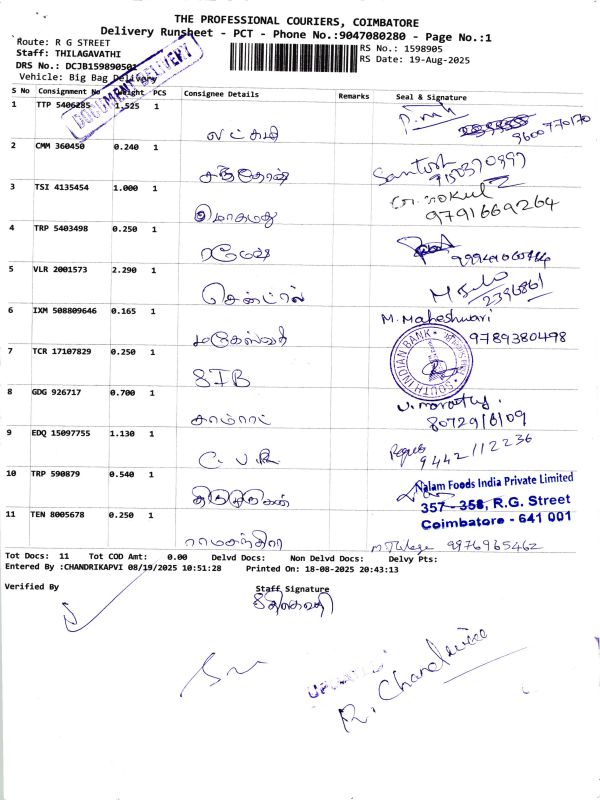 THE PROFESSIONAL COURIERS, COIMBATORE
Delivery Runsheet - PCT - Phone No.:9047080280 - Page No.:1
Route: R G STREET
Staff: THILAGAVATHI
DRS No.: DCJB159890501
Vehicle: Big Bag Delivery
RS No.: 1598905
RS Date: 19-Aug-2025
DOCUMENT DELIVERY
S No Consignment No Weight PCS Consignee Details Remarks Seal & Signature
1 TTP 5406285 1.525 1 லட்சுமி
2 CMM 360450 0.240 1 சந்தோஷ் Santosh
3 TSI 4135454 1.000 1 Gokul 9791669264
4 TRP 5403498 0.250 1 ரமேஷ்
5 VLR 2001573 2.290 1 சென்ட்ரல் 2396861
6 IXM 508809646 0.165 1 மகேஸ்வரி M. Maheshwari 9789380498
7 TCR 17107829 0.250 1 SIB SOUTH INDIAN BANK
8 GDG 926717 0.700 1 சாம்ராட்
9 EDQ 15097755 1.130 1 C. V. R 9442112236
10 TRP 590879 0.540 1 Nalam Foods India Private Limited
357 - 358, R.G. Street
Coimbatore - 641 001
11 TEN 8005678 0.250 1 ராமசந்திரா 9976965462
Tot Docs: 11 Tot COD Amt: 0.00 Delvd Docs: Non Delvd Docs: Delvy Pts:
Entered By :CHANDRIKAPVI 08/19/2025 10:51:28 Printed On: 18-08-2025 20:43:13
Verified By Staff Signature
R. Chandrika